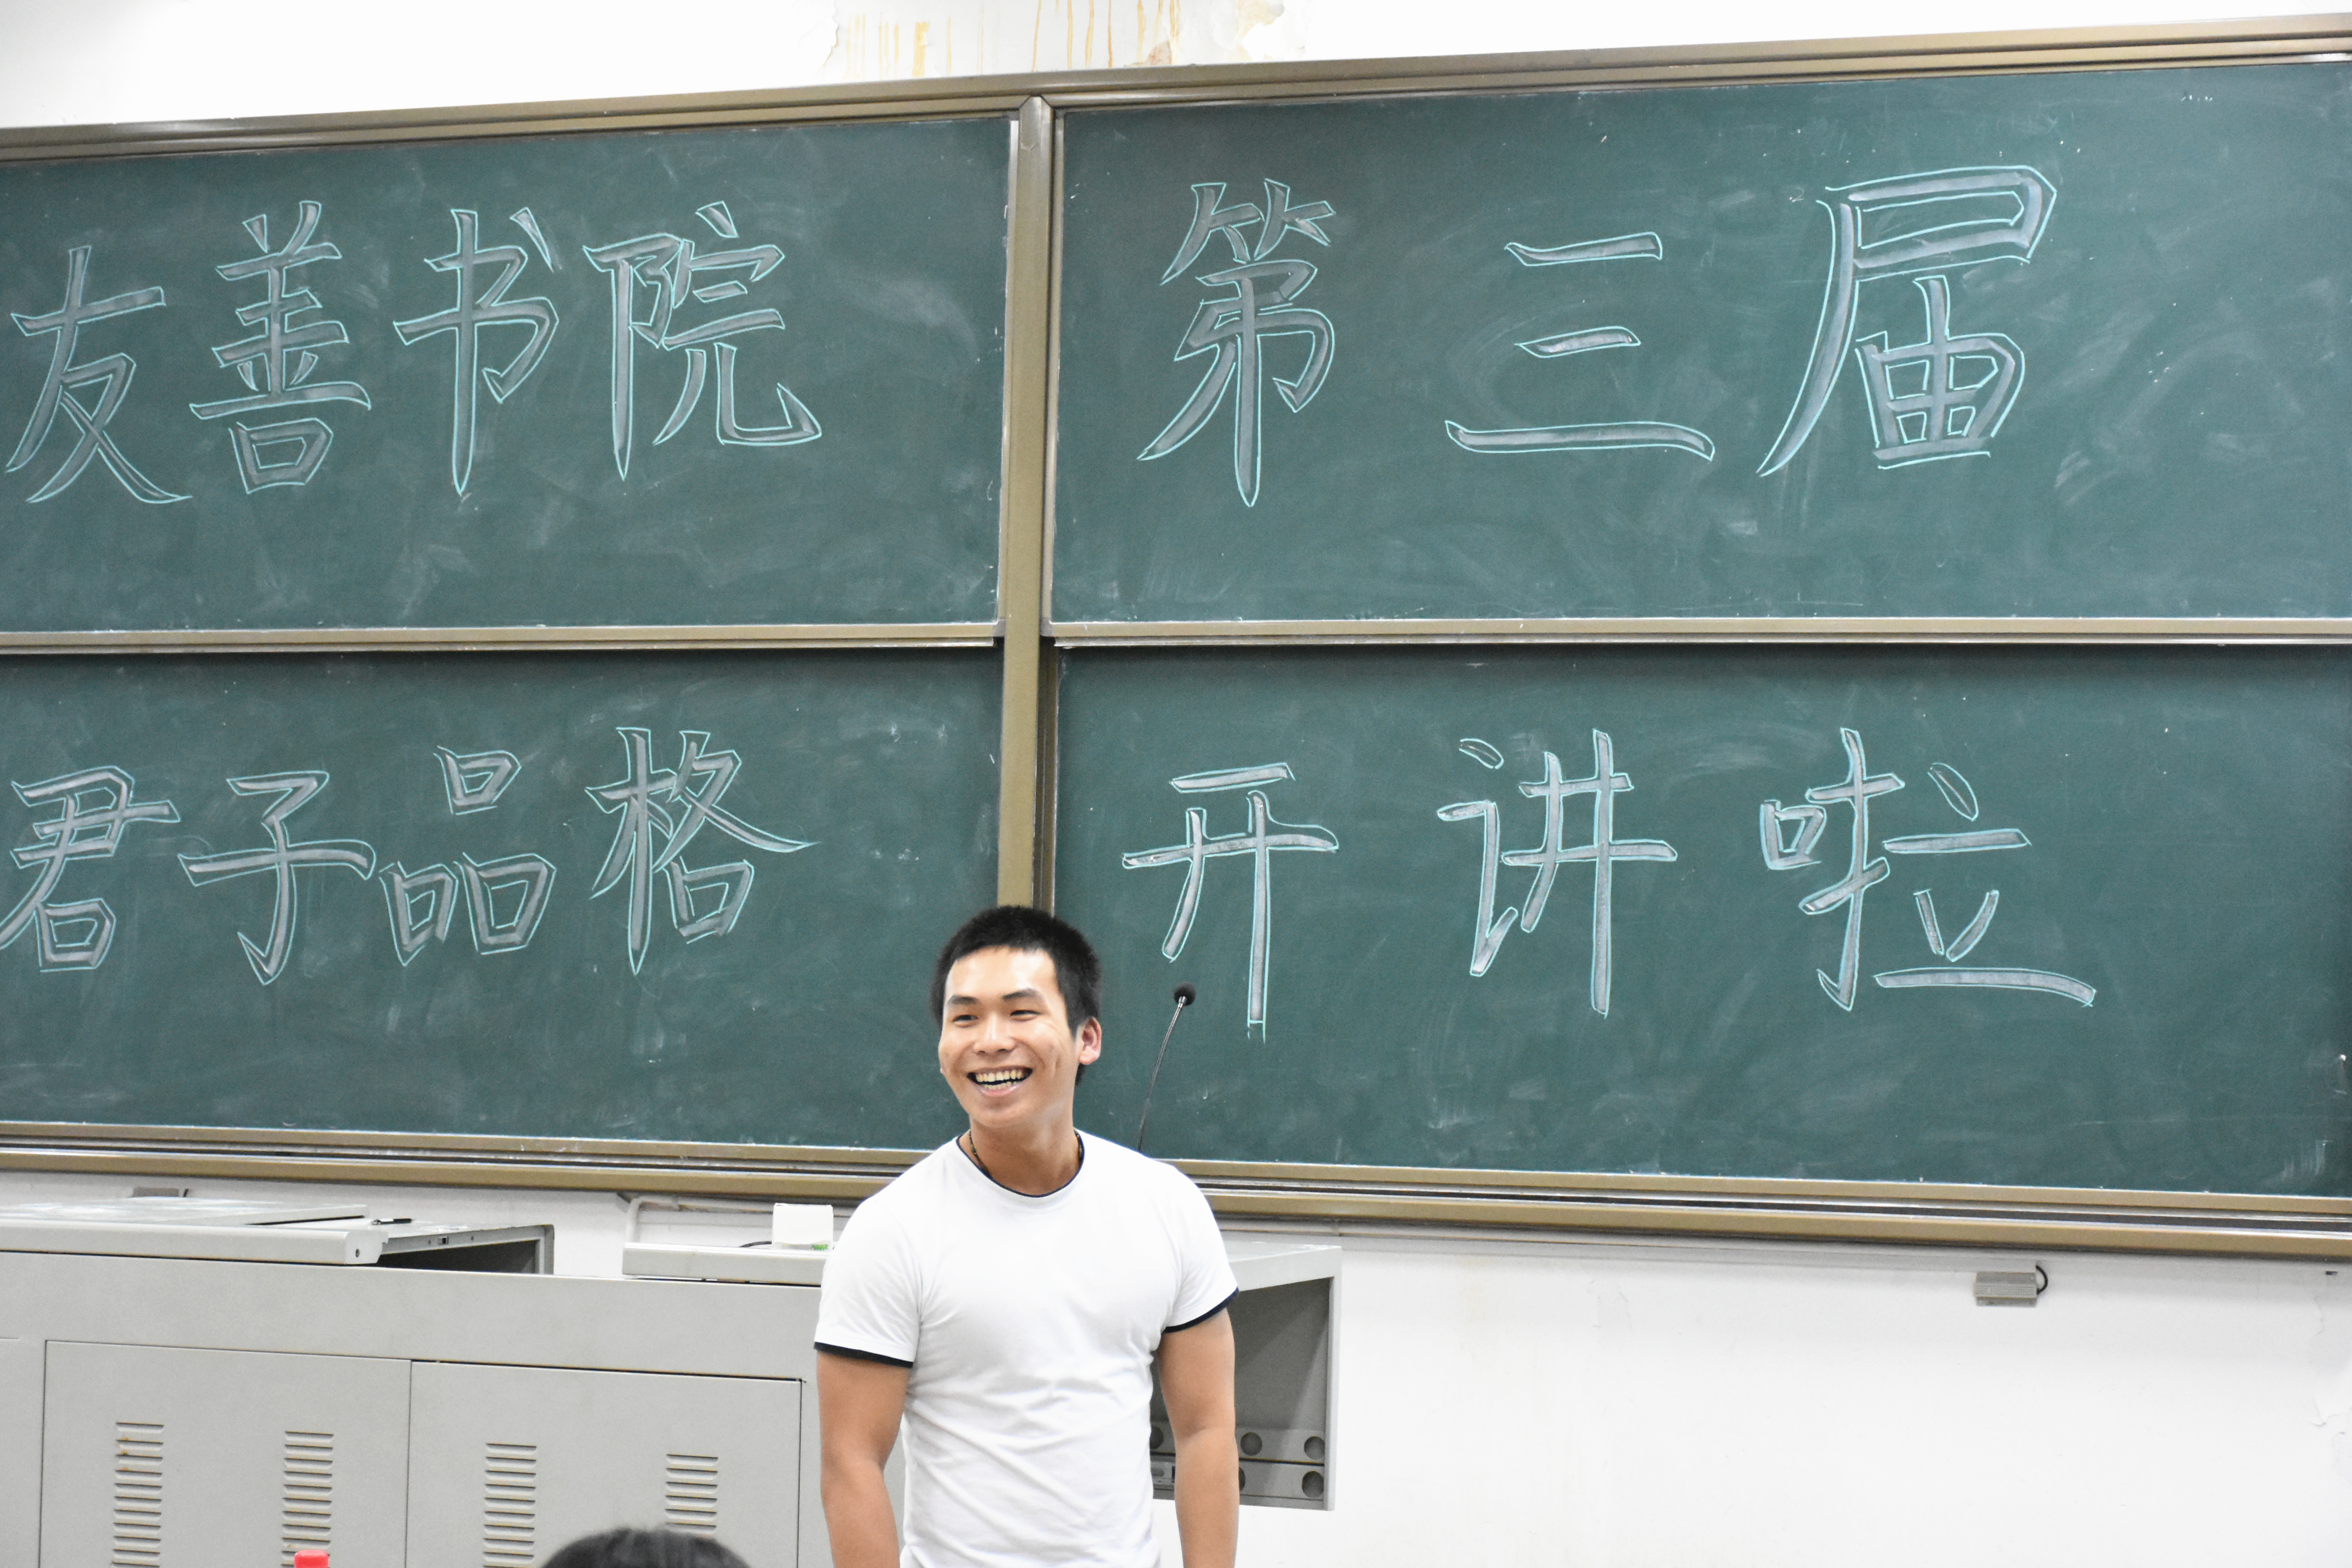 友善书院
第三届
君子品格
开讲啦